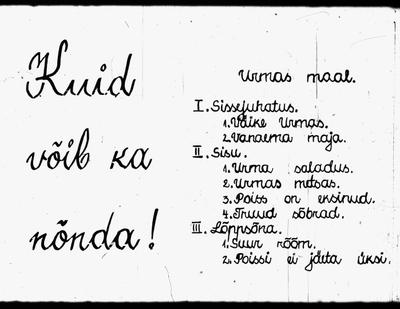 Kuid
võib ka
nõnda!
Urmas maal.
I. Sissejuhatus.
1. Väike Urmas.
2. Vanaema maja.
II. Sisu.
1. Urma saladus.
2. Urmas metsas.
3. Poiss on eksinud.
4. Truud sõbrad.
III. Lõppsõna.
1. Suur rõõm.
2. Poissi ei jäeta üksi.